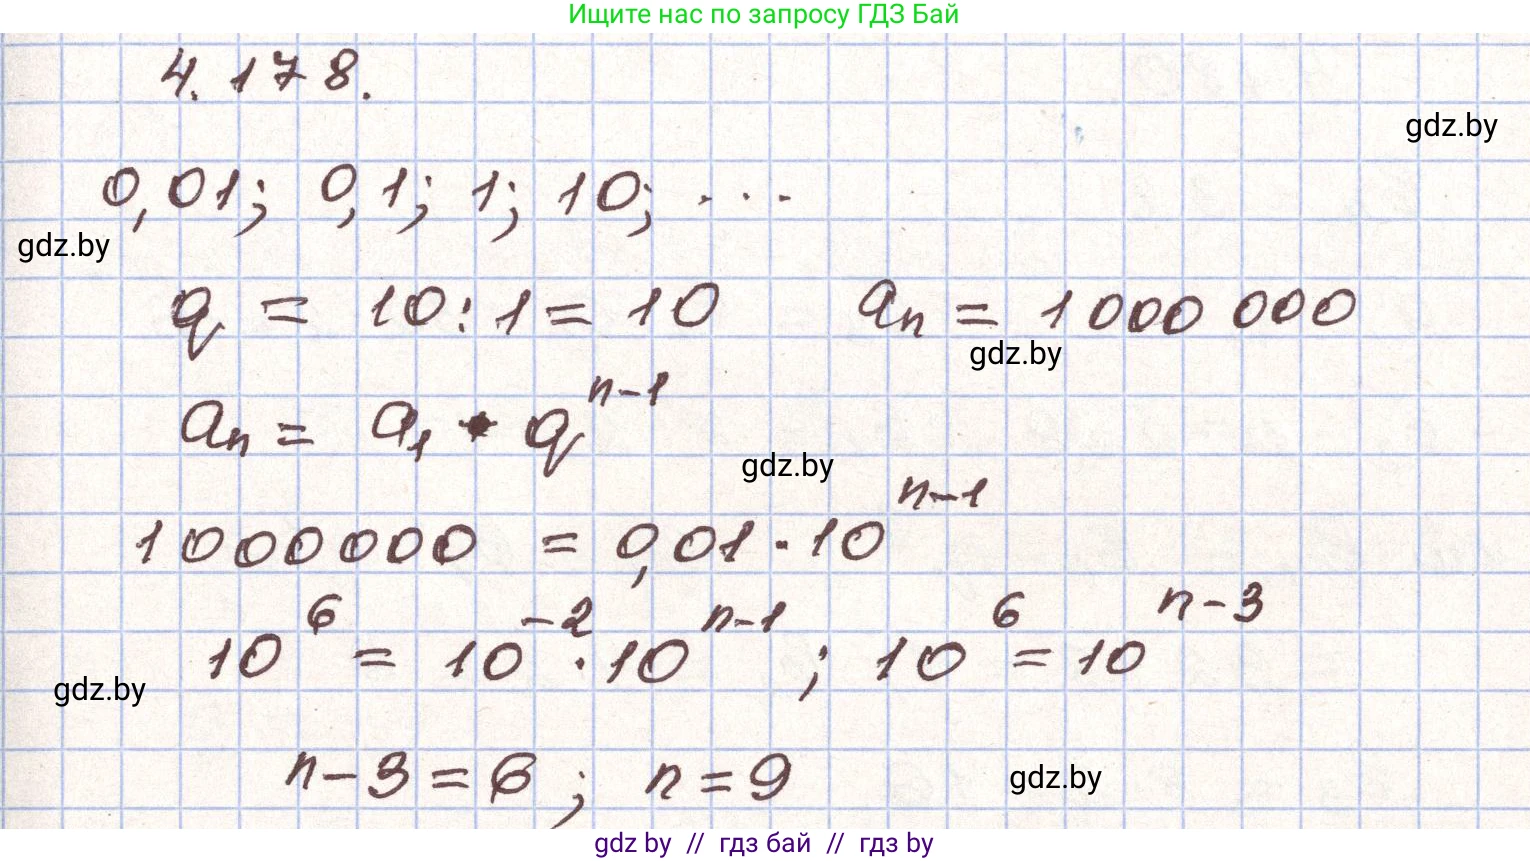 Ищите нас по запросу ГДЗ Бай
4.178.
gdz.by
0,01; 0,1; 1; 10; ...
gdz.by
q = 10:1 = 10 aₙ = 1000 000
gdz.by
aₙ = a₁ · qⁿ⁻¹
gdz.by
1000000 = 0,01 · 10ⁿ⁻¹
10⁶ = 10⁻² · 10ⁿ⁻¹ ; 10⁶ = 10ⁿ⁻³
gdz.by
n-3 = 6 ; n = 9
gdz.by
gdz by // гдз бай // гдз by